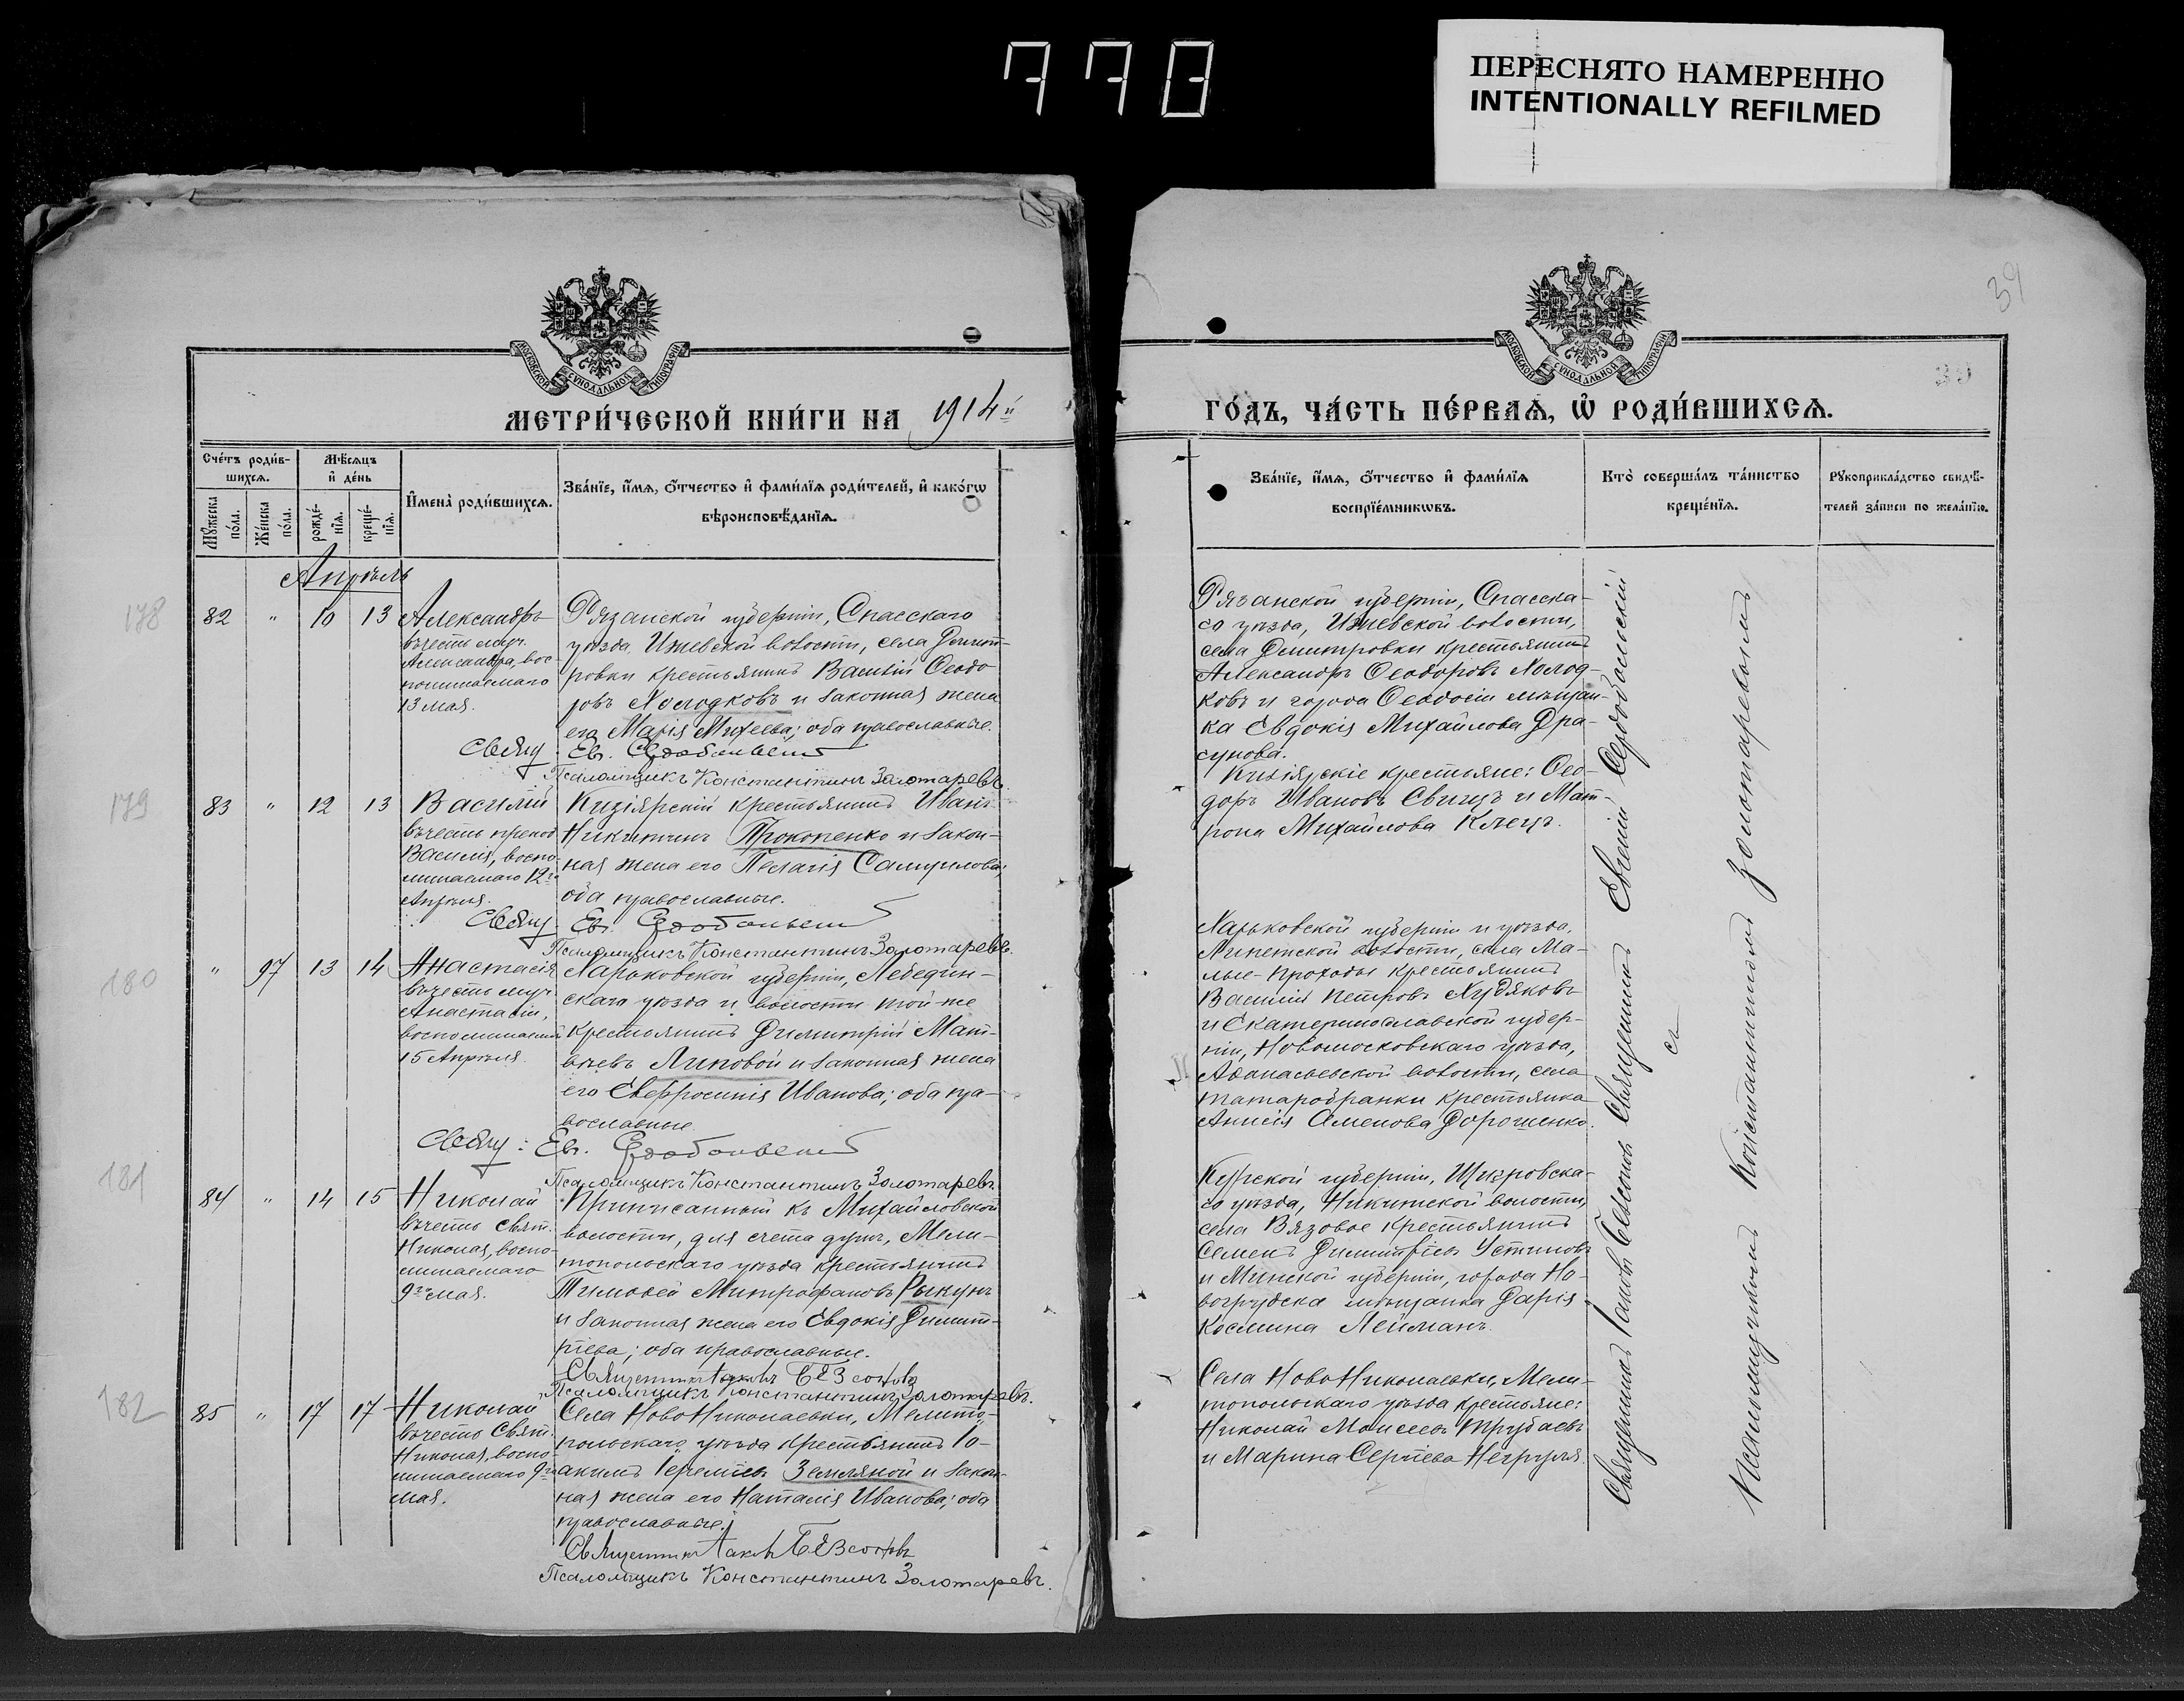 778
ПЕРЕСНЯТО НАМЕРЕННО
INTENTIONALLY REFILMED
39
МОСКОВСКОЙ СѴНОДАЛЬНОЙ ТИПОГРАФІИ
МОСКОВСКОЙ СѴНОДАЛЬНОЙ ТИПОГРАФІИ
МЕТРИ́ЧЕСКОЙ КНИ́ГИ НА 1914й
ГО́ДЪ, ЧА́СТЬ ПЕ́РВАѦ, Ѡ҆ РОДИ́ВШИХСѦ.
Сче́тъ роди́в-
шихсѧ.
Мꙋ́жеска по́ла.
Же́нска по́ла.
Мѣ́сѧцъ
и҆ де́нь
рожде́-
нїѧ.
креще́-
нїѧ.
И҆мена̀ роди́вшихсѧ.
Зва́нїе, и҆́мѧ, ѻ҆́тчество и҆ фами́лїѧ роди́телей, и҆ како́гѡ
вѣроисповѣ́данїѧ.
Зва́нїе, и҆́мѧ, ѻ҆́тчество и҆ фами́лїѧ
воспрїе́мникѡвъ.
Кто̀ соверша́лъ та́инство
креще́нїѧ.
Рꙋкоприкла́дство свидѣ́-
телей за́писи по жела́нїю.
Апрѣль
178
82 " 10 13
Александръ
въ честь муч.
Александра, вос-
поминаемаго
13 мая.
Рязанской губерніи, Спасскаго
уѣзда, Ижевской волости, села Димит-
ровки крестьянинъ Василій Ѳеодо
ровъ Холодковъ и законная жена
его Марія Михеева; оба православные.
Свящ: Ев.
Псаломщикъ Константинъ Золотаревъ.
Рязанской губерніи, Спасска-
го уѣзда, Ижевской волости,
села Димитровки крестьянинъ
Александръ Ѳеодоровъ Холод-
ковъ и города Ѳеодосіи мѣщан-
ка Евдокія Михайлова Дра-
гунова.
179
83 " 12 13
Василій
въ честь препод
Василія, воспо-
минаемаго 12го
Апрѣля.
Кизіярскій крестьянинъ Иванъ
Никитинъ Прокопенко и закон-
ная жена его Пелагія Самуилова;
оба православные.
Свящ: Ев.
Псаломщикъ Константинъ Золотаревъ.
Кизіярскіе крестьяне: Ѳео-
доръ Ивановъ и Мат-
рона Михайлова Клецъ.
180
" 97 13 14
Анастасія
въ честь муч.
Анастасіи,
воспоминаемой
15 Апрѣля.
Харьковской губерніи, Лебедин-
скаго уѣзда и волости той-же
крестьянинъ Димитрій Мат-
вѣевъ Липовой и законная жена
его Евфросинія Иванова; оба пра-
вославные.
Свящ: Ев.
Псаломщикъ Константинъ Золотаревъ.
Харьковской губерніи и уѣзда,
Липетской волости, села Ма-
лые-Проходы крестьянинъ
Василій Петровъ Худяковъ
и Екатеринославской губер-
ніи, Новомосковскаго уѣзда,
Аѳанасьевской волости, села
крестьянка
Анисія Семенова Дорошенко.
181
84 " 14 15
Николай
въ честь Свят.
Николая, воспо-
минаемаго
9го мая.
Приписанный къ Михайловской
волости, для счета душъ, Мели-
топольскаго уѣзда крестьянинъ
Тимоѳей Митрофановъ Рыкунъ
и законная жена его Евдокія Димит-
ріева; оба православные.
Священникъ Іаковъ
Псаломщикъ Константинъ Золотаревъ.
Курской губерніи, Щигровска-
го уѣзда, Никитской волости,
села Вязовое крестьянинъ
Семенъ Димитріевъ Устиновъ
и Минской губерніи, города Но-
вогрудска мѣщанка Дарія
Космина Лейманъ.
182
85 " 17 17
Николай
въ честь Свят.
Николая, воспо-
минаемаго 9го
мая.
Села НовоНиколаевки, Мелито-
польскаго уѣзда крестьянинъ Іо-
акимъ Іереміевъ Земляной и закон-
ная жена его Наталія Иванова; оба
православные.
Священникъ Іаковъ
Псаломщикъ Константинъ Золотаревъ.
Села НовоНиколаевки, Мели-
топольскаго уѣзда крестьяне:
Николай Моисеевъ Трубаевъ
и Марина Сергіева Негруля.
Священникъ Іаковъ
Священникъ Евгеній
съ
Псаломщикомъ Константиномъ Золотаревымъ